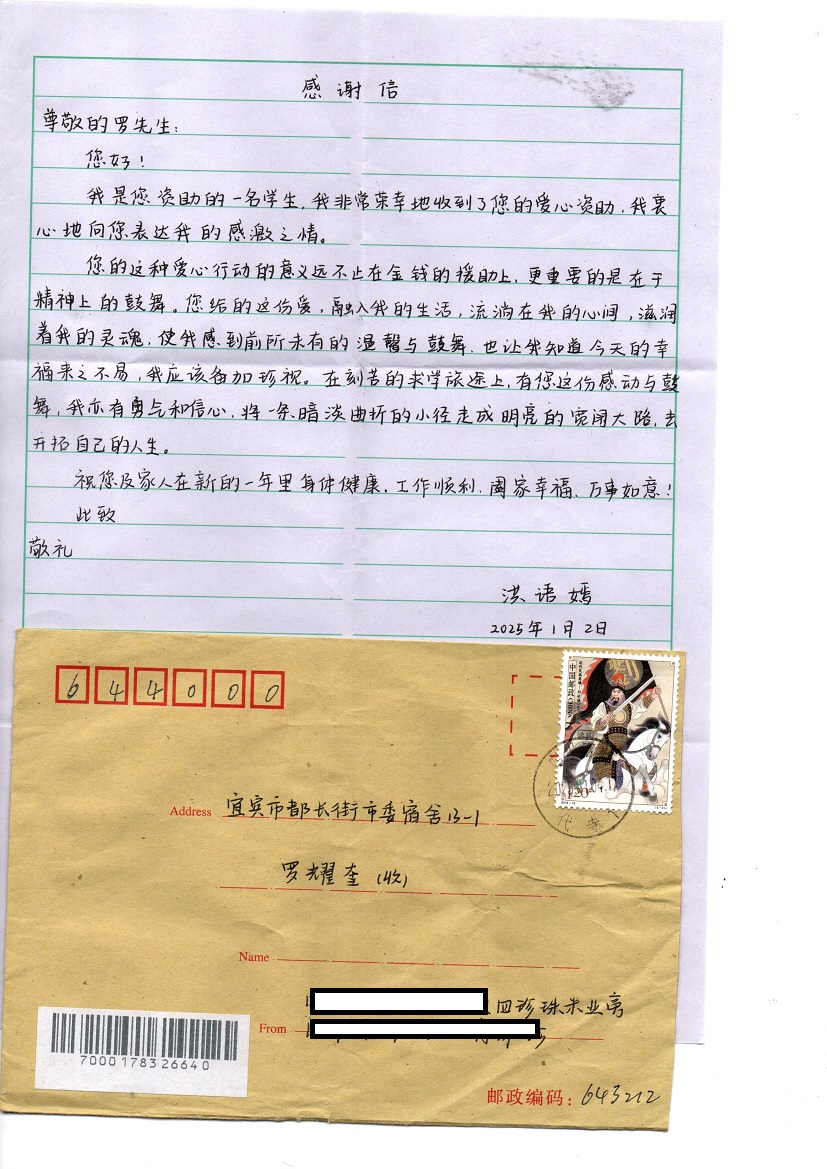 感谢信
尊敬的罗先生：
您好！
我是您资助的一名学生，我非常荣幸地收到了您的爱心资助，我衷
心地向您表达我的感激之情。
您的这种爱心行动的意义远不止在金钱的援助上，更重要的是在于
精神上的鼓舞。您给的这份爱，融入我的生活，流淌在我的心间，滋润
着我的灵魂，使我感到前所未有的温馨与鼓舞，也让我知道今天的幸
福来之不易，我应该备加珍视。在刻苦的求学旅途上，有您这份感动与鼓
舞，我亦有勇气和信心，将一条暗淡曲折的小径走成明亮的宽阔大路，去
开拓自己的人生。
祝您及家人在新的一年里身体健康，工作顺利，阖家幸福，万事如意！
此致
敬礼
洪语嫣
2025年1月2日
644000
中国邮政
120
Address 宜宾市都长街市委宿舍13-1
罗耀奎（收）
Name
四珍珠米业旁
From
70001783 26640
邮政编码：643212